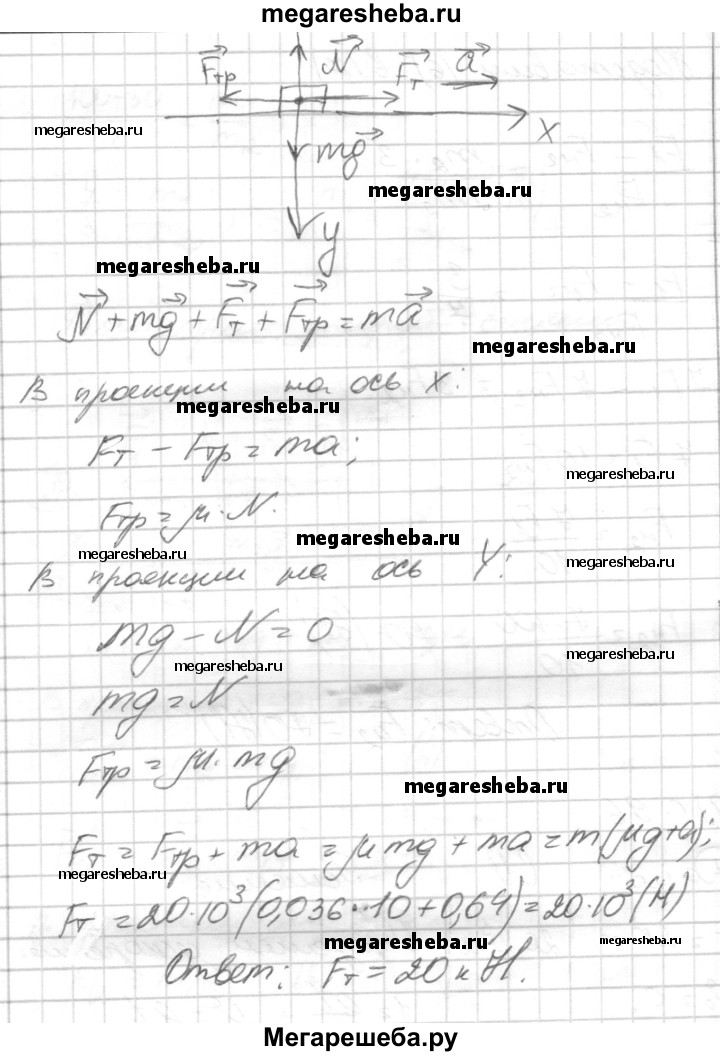 megaresheba.ru
Fтр N Fт a
megaresheba.ru
x
mg
megaresheba.ru
y
megaresheba.ru
N + mg + Fт + Fтр = ma
megaresheba.ru
В проекции на ось X:
megaresheba.ru
Fт − Fтр = ma;
megaresheba.ru
Fтр = μ·N.
megaresheba.ru
megaresheba.ru
megaresheba.ru
В проекции на ось Y:
mg − N = 0
megaresheba.ru
megaresheba.ru
mg = N
Fтр = μ·mg
megaresheba.ru
Fт = Fтр + ma = μmg + ma = m(μg+a);
megaresheba.ru
Fт = 20·10³(0,036·10+0,64) = 20·10³(Н)
megaresheba.ru
megaresheba.ru
Ответ: Fт = 20 кН.
Мегарешеба.ру